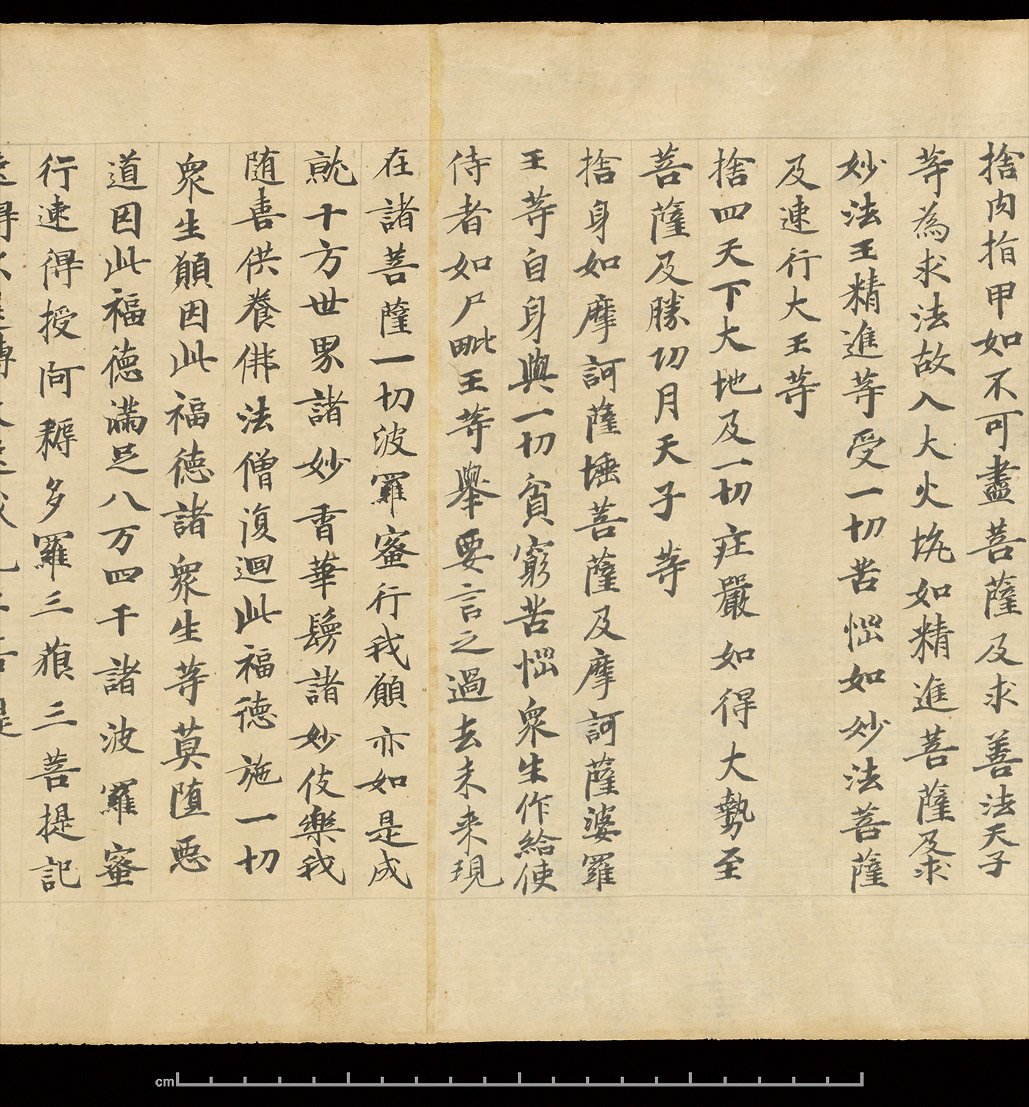 捨肉指甲如不可盡菩薩及求善法天子
等為求法故入大火坑如精進菩薩及求
妙法王精進等受一切苦惱如妙法菩薩
及速行大王等
捨四天下大地及一切庄嚴如得大勢至
菩薩及勝切月天子等
捨身如摩訶薩埵菩薩及摩訶薩婆羅
王等自身與一切貧窮苦惱衆生作給使
侍者如尸毗王等舉要言之過去未来現
在諸菩薩一切波羅蜜行我願亦如是成
就十方世界諸妙香華鬘諸妙伎樂我
随喜供養佛法僧復迴此福德施一切
衆生願因此福德諸衆生等莫堕惡
道因此福德滿足八万四千諸波羅蜜
行速得授阿耨多羅三藐三菩提記
速得不退轉